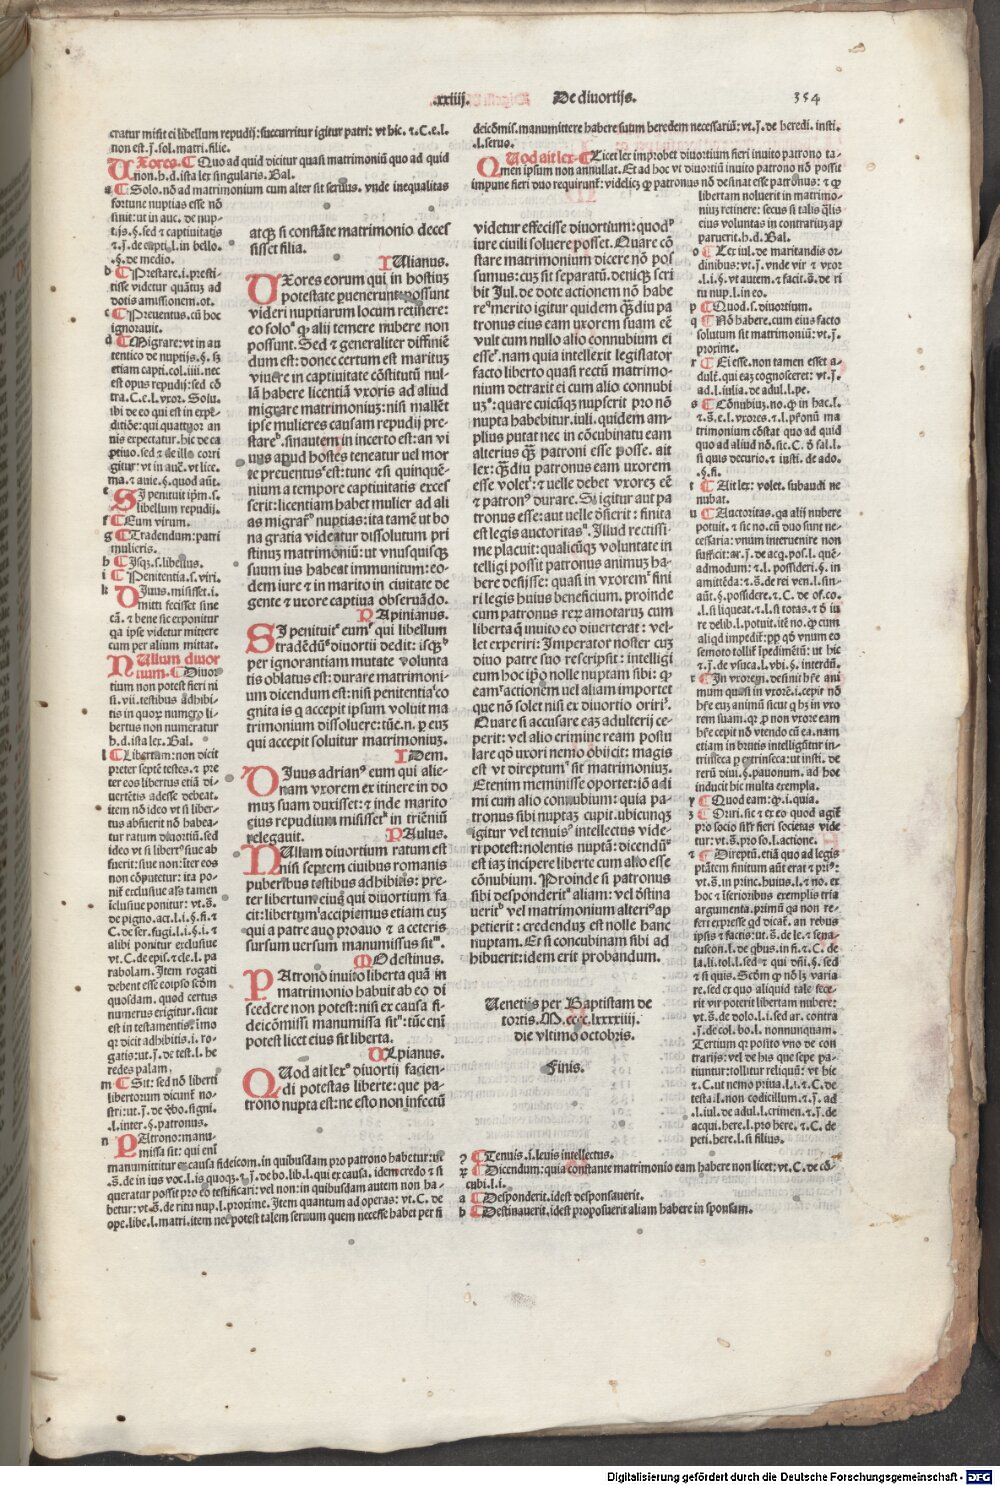 .xxiiij.
De diuortijs.
354
cratur misit ei libellum repudij: succurritur igitur patri: vt hic. ⁊.C.e.l.
non est.ȷ̄.sol.matri.filie.
UXores. ¶ Quo ad quid dicitur quasi matrimoniū quo ad quid
non.h.d.ista lex singularis. Bal.
a ¶ Solo. nō ad matrimonium cum alter sit seruus. vnde inequalitas
fortune nuptias esse nō
sinit: ut in auc. de nup-
tijs.§. sed ⁊ captiuitatis
⁊.ȷ̄.de capti.l.in bello.
.§. de medio.
b ¶ Prestare. i. presti-
tisse videtur quātuȝ ad
dotis amissionem. ot.
c ¶ Preuentus. cū hoc
ignorauit.
d ¶ Migrare: vt in au
tentico de nuptijs.§. sȝ
etiam capti.col.iiij. nec
est opus repudij: sed cō
tra.C.e.l.vxor. Solu.
ibi de eo qui est in expe-
ditiōe: qui quattuor an
nis expectatur. hic de ca
ptiuo. sed ⁊ de illo corri
gitur: vt in auc̄. vt lice.
ma. ⁊ auie.§. quod aūt.
e SI penituit ip̄m. s.
libellum repudij.
f ¶ Eum virum.
g ¶ Tradendum: patri
mulieris.
h ¶ Isqȝ. s. libellus.
i ¶ Penitentia. s. viri.
k DIuus. misisset. i.
mitti fecisset sine
cā. ⁊ bene sic exponitur
qa ipse videtur mittere
cum per alium mittat.
NUllum diuor
tium. ¶ Diuor
tium non potest fieri ni
si. vii. testibus adhibi-
tis in quoꝝ numero li-
bertus non numeratur
h.d. ista lex. Bal.
l ¶ Libertum: non dicit
preter septē testes. ⁊ pre
ter eos libertus etiā di-
uertētis adesse debeat.
item nō ideo vt si liber-
tus absuerit nō habea-
tur ratum diuortiū. sed
ideo vt si libert⁹ siue ab
fuerit: siue non: īter eos
non cōputetur: ita po-
nit̄ exclusiue als̄ tamen
īclusiue ponitur: vt.s̄.
de pigno. act.l.i.§. fi. ⁊
C.de ser.fugi.l.i.§. i. ⁊
alibi ponitur exclusiue
vt.C.de epis. ⁊ cle.l. pa
rabolam. Item rogati
debent esse eoipso scdm
quosdam. quod certus
numerus exigitur. sicut
est in testamentis. imo
qr dicit adhibitis. i. ro-
gatis: ut.ȷ̄. de test.l. he
redes palam.
m ¶ Sit: sed nō liberti
libertorum dicunt̄ no-
stri: ut.ȷ̄. de ꝟbo. signi.
.l. inter.§. patronus.
n PAtrono: manu-
missa sit: qui enī
manumittitur ex causa fideicom. in quibusdam pro patrono habetur: vt
.s̄. de in ius voc.l. is quoqȝ. ⁊.ȷ̄. de bo. lib.l. qui ex causa. idem credo ⁊ si
queratur possit pro eo testificari: vel non: in quibusdam autem non ha-
betur: vt.s̄. de ritu nup.l. proxime. Item quantum ad operas: vt.C. de
ope. libe.l. matri. item nec potest talem seruum quem necesse habet per fi
atqȝ si constāte matrimonio deces
sisset filia.
IUlianus.
UXores eorum qui in hostiuȝ
potestate puenerunt: possunt
videri nuptiarum locum retinere:
eo soloᵃ qꝫ alij temere nubere non
possunt. Sed ⁊ generaliter diffiniē
dum est: donec certum est marituȝ
viuere in captiuitate cōstitutū nul-
lā habere licentiā vxoris ad aliud
migrare matrimoniuȝ: nisi mallēt
ipse mulieres causam repudij pre-
stareᵇ. sin autem in incerto est: an vi
uus apud hostes teneatur uel mor
te preuentusᶜ est: tunc ⁊ si quinquē-
nium a tempore captiuitatis exces
serit: licentiam habet mulier ad ali
as migrareᵈ nuptias: ita tamē ut bo
na gratia videatur dissolutum pri
stinuȝ matrimoniū: ut vnusquisqȝ
suum ius habeat immunitum: eo-
dem iure ⁊ in marito in ciuitate de
gente ⁊ uxore captiua obseruādo.
PApinianus.
SI penituitᵉ eumᶠ qui libellum
tradēdūᵍ diuortij dedit: isqȝʰ
per ignorantiam mutate volunta
tis oblatus est: durare matrimoni
um dicendum est: nisi penitentiaⁱ co
gnita is q accepit ipsum voluit ma
trimonium dissoluere: tūc.n. ꝑ eum
qui accepit soluitur matrimoniuȝ.
IDem.
DIuus adrian⁹ eum qui alie-
nam vxorem ex itinere in do
muȝ suam duxisset: ⁊ inde marito
eius repudium misissetᵏ in triēniū
relegauit.
PAulus.
NUllum diuortium ratum est
nisi septem ciuibus romanis
puberibus testibus adhibitis: pre-
ter libertum eiuȝ qui diuortium fa
cit: libertumˡ accipiemus etiam euȝ
qui a patre auo proauo ⁊ a ceteris
sursum uersum manumissus sitᵐ.
MOdestinus.
PAtrono inuito liberta quā in
matrimonio habuit ab eo di
scedere non potest: nisi ex causa fi-
deicōmissi manumissa sitⁿ: tūc enī
potest licet eius sit liberta.
ULpianus.
QUod ait lexᵒ diuortij facien-
di potestas liberte: que pa-
trono nupta est: ne esto non infectū
deicōmis. manumittere habere suum heredem necessariū: vt.ȷ̄. de heredi. insti.
.l. seruo.
QUod ait lex. ¶ Licet lex improbet diuortium fieri inuito patrono ta-
men ipsum non annullat. Et ad hoc vt diuortiū inuito patrono nō possit
impune fieri duo requirunt̄: videlicȝ qꝫ patronus nō desinat esse patronus: ⁊ qꝫ
videtur effecisse diuortium: quodᵖ
iure ciuili soluere posset. Quare cō
stare matrimonium dicere nō pos
sumus: cuȝ sit separatū. deniqȝ scri
bit Jul. de dote actionem nō habe
re. merito igitur quidem qȝdiu pa
tronus eius eam uxorem suam eē
vult cum nullo alio connubium ei
esseʳ. nam quia intellexit legislator
facto liberto quasi rectū matrimo-
nium detraxit ei cum alio connubi
uȝˢ: quare cuicūqȝ nupserit pro nō
nupta habebitur. iuli. quidem am-
plius putat nec in cōcubinatu eam
alterius qȝ patroni esse posse. ait
lex: qȝdiu patronus eam uxorem
esse voletᵗ: ⁊ uelle debet vxoreȝ eē
⁊ patron⁹ durare. Si igitur aut pa
tronus esse: aut uelle desierit: finita
est legis auctoritasᵘ. Illud rectissi-
me placuit: qualicūqȝ voluntate in
telligi possit patronus animuȝ ha-
bere desijsse: quasi in vxoremˣ fini
ri legis huius beneficium. proinde
cum patronus reꝝ amotaruȝ cum
liberta q inuito eo diuerterat: vel-
let experiri: Imperator noster cuȝ
diuo patre suo rescripsit: intelligi
eum hoc ipso nolle nuptam sibi: qꝫ
eamʸ actionem uel aliam importet
que nō solet nisi ex diuortio oririᶻ.
Quare si accusare eaȝ adulterij ce-
perit: vel alio crimine ream postu
lare qd uxori nemo obijcit: magis
est vt diremptum sit matrimoniuȝ.
Etenim meminisse oportet: iō adi
mi cum alio connubium: quia pa-
tronus sibi nuptaȝ cupit. ubicunqȝ
igitur vel tenuis intellectus vide-
ri potest: nolentis nuptā: dicendū
est iaȝ incipere liberte cum alio esse
cōnubium. Proinde si patronus
sibi desponderitᵃ aliam: vel dstina
ueritᵇ vel matrimonium alteri⁹ ap
petierit: credenduȝ est nolle hanc
nuptam. Et si concubinam sibi ad
hibuerit: idem erit probandum.
Uenetijs per Baptistam de
tortis. M.cccc.lxxxxiiij.
die vltimo octobris.
Finis.
libertam noluerit in matrimo-
nium retinere: secus si talis qlis
eius voluntas in contrariuȝ ap
paruerit. h.d. Bal.
o ¶ Lex iul. de maritandis or-
dinibus: vt.ȷ̄. vnde vir ⁊ vxor
.l.i.§. vt autem. ⁊ facit.s̄. de ri
tu nup.l. in eo.
p ¶ Quod. s. diuortium.
q ¶ Nō habere. cum eius facto
solutum sit matrimoniū: vt.ȷ̄.
proxime.
r ¶ Ei esse. non tamen esset a-
dult̄. qui eaȝ cognosceret: vt.ȷ̄.
ad.l. iulia. de adul.l. pe.
s ¶ Cōnubiuȝ. no. qꝫ in hac.l.
⁊.s̄.e.l. vxores. ⁊.l. pn̄onū ma
trimonium cōstat quo ad quid
quo ad aliud nō. sic.C. d sal.l.
si quis decurio. ⁊ insti. de ado.
.§. fi.
t ¶ Ait lex: volet. subaudi ne
nubat.
u ¶ Auctoritas. qa alij nubere
potuit. ⁊ sic no. cū duo sunt ne-
cessaria: vnum interuenire non
sufficit: ar.ȷ̄. de acq. pos.l. quē-
admodum: ⁊.l. possideri.§. in
amittēda: ⁊.s̄. de rei ven.l. sin-
aūt.§. possidere. ⁊.C. de of. co.
.l. si liqueat. ⁊.l. si totas. ⁊ d iu
re delib.l. potuit. itē no. qꝫ cum
aliqd impedit̄: pp qd vnum eo
semoto tollit̄ īpedimētū: ut hic
⁊.ȷ̄. de vsuca.l. vbi.§. interdū.
x ¶ In vxorem. desinit hr̄e ani
mum quasi in vxorē. i. cepit nō
hr̄e euȝ animū sicut q hȝ in vxo
rem suam. qꝫ ꝓ non vxore eam
hr̄e cepit nō vtendo cū ea. nam
etiam in brutis intelligūtur in-
trinseca ꝑ extrinseca: ut insti. de
rerū diui.§. pauonum. ad hoc
inducit hic multa exempla.
y ¶ Quod eam: qꝫ. i. quia.
z ¶ Oriri. sic ⁊ ex eo quod agit̄
pro socio silr̄ fieri societas vide
tur: vt.s̄. pro so.l. actione.
⁊ ¶ Direptū. etiā quo ad legis
ptātem finitum aūt erat ⁊ pri⁹:
vt.s̄. in princ. huius.l. ⁊ no. ex
hoc ⁊ īferioribus exemplis tria
argumenta. primū qa non re-
fert expresse qd dicat̄. an rebus
ipsis ⁊ factis: ut.s̄. de le. ⁊ sena-
tuscon.l. de qbus. in fi. ⁊.C. de
la.li. tol.l. sed ⁊ qui dn̄i.§. sed
⁊ si quis. Scdm qꝫ nō lȝ varia
re. sed ex quo aliquid tale fece-
rit vir poterit libertam nubere:
vt.s̄. de dolo.l.i. sed ar. contra
.ȷ̄. de col. bo.l. nonnunquam.
Tertium qr posito vno de con
trarijs: vel de his que sepe pa-
tiuntur: tollitur reliquū: vt hic
⁊.C. ut nemo priua.l.i. ⁊.C. de
testa.l. non codicillum. ⁊.ȷ̄. ad
.l. iul. de adul.l. crimen. ⁊.ȷ̄. de
acqui. here.l. pro here. ⁊.C. de
peti. here.l. si filius.
ꝯ ¶ Tenuis. i. leuis intellectus.
ꝝ ¶ Dicendum: quia constante matrimonio eam habere non licet: vt.C. de cō-
cubi.l.i.
a ¶ Desponderit. idest desponsauerit.
b ¶ Destinauerit. idest proposuerit aliam habere in sponsam.
Digitalisierung gefördert durch die Deutsche Forschungsgemeinschaft - DFG